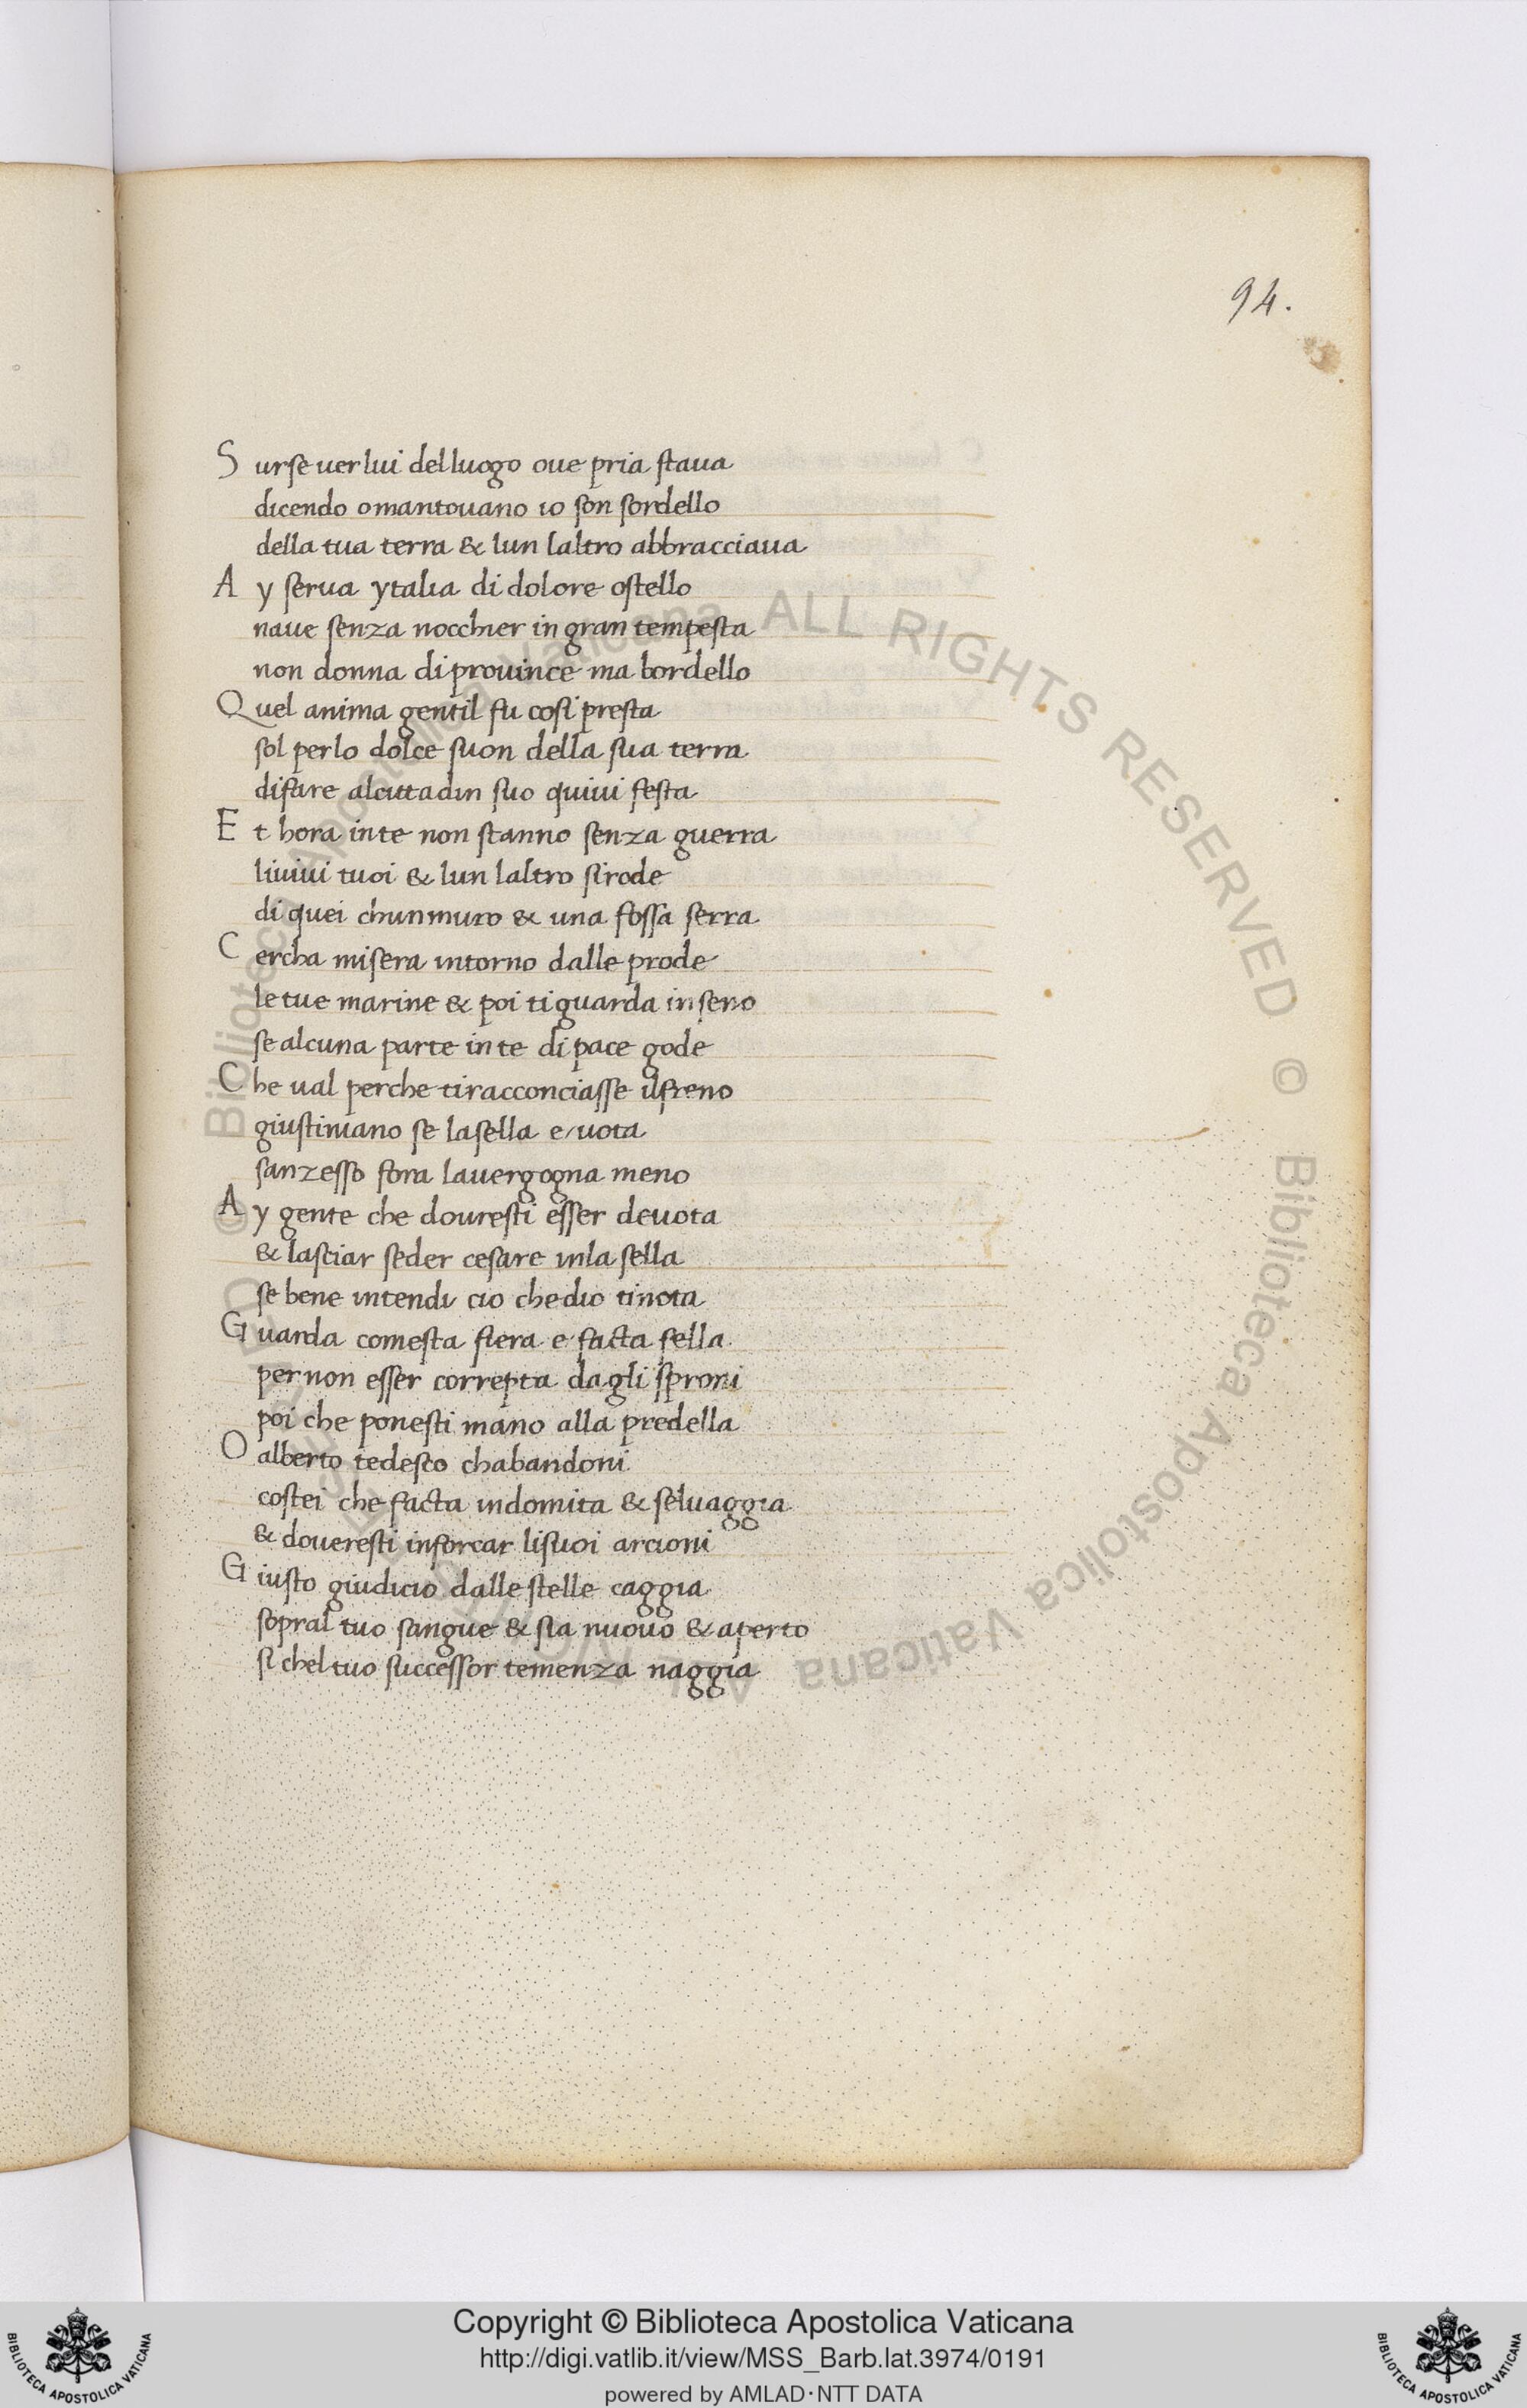 94.
Surse uer lui del luogo oue pria staua
dicendo o mantouano io son sordello
della tua terra & lun laltro abbracciaua
Ay serua ytalia di dolore ostello
naue senza nocchier in gran tempesta
non donna di prouince ma bordello
Quel anima gentil fu cosi presta
sol perlo dolce suon della sua terra
difare alcittadin suo quiui festa
Et hora inte non stanno senza guerra
liuiui tuoi & lun laltro sirode
di quei chunmuro & una fossa serra
Cercha misera intorno dalle prode
letue marine & poi tiguarda inseno
se alcuna parte inte di pace gode
Che ual perche tiracconciasse ilfreno
giustiniano se lasella e uota
sanzesso fora lauergogna meno
Ay gente che douresti esser deuota
& lasciar seder cesare inla sella
se bene intendi cio chedio tinota
Guarda comesta fiera e facta fella
pernon esser correpta dagli sproni
poi che ponesti mano alla predella
O alberto tedesco chabandoni
costei che facta indomita & seluaggia
& doueresti inforcar lisuoi arcioni
Giusto giudicio dalle stelle caggia
sopral tuo sangue & sia nuouo & aperto
si cheltuo successor temenza naggia
© Biblioteca Apostolica Vaticana ALL RIGHTS RESERVED © Biblioteca Apostolica Vaticana ALL RIGHTS RESERVED
Copyright © Biblioteca Apostolica Vaticana
http://digi.vatlib.it/view/MSS_Barb.lat.3974/0191
powered by AMLAD·NTT DATA
BIBLIOTECA APOSTOLICA VATICANA
BIBLIOTECA APOSTOLICA VATICANA